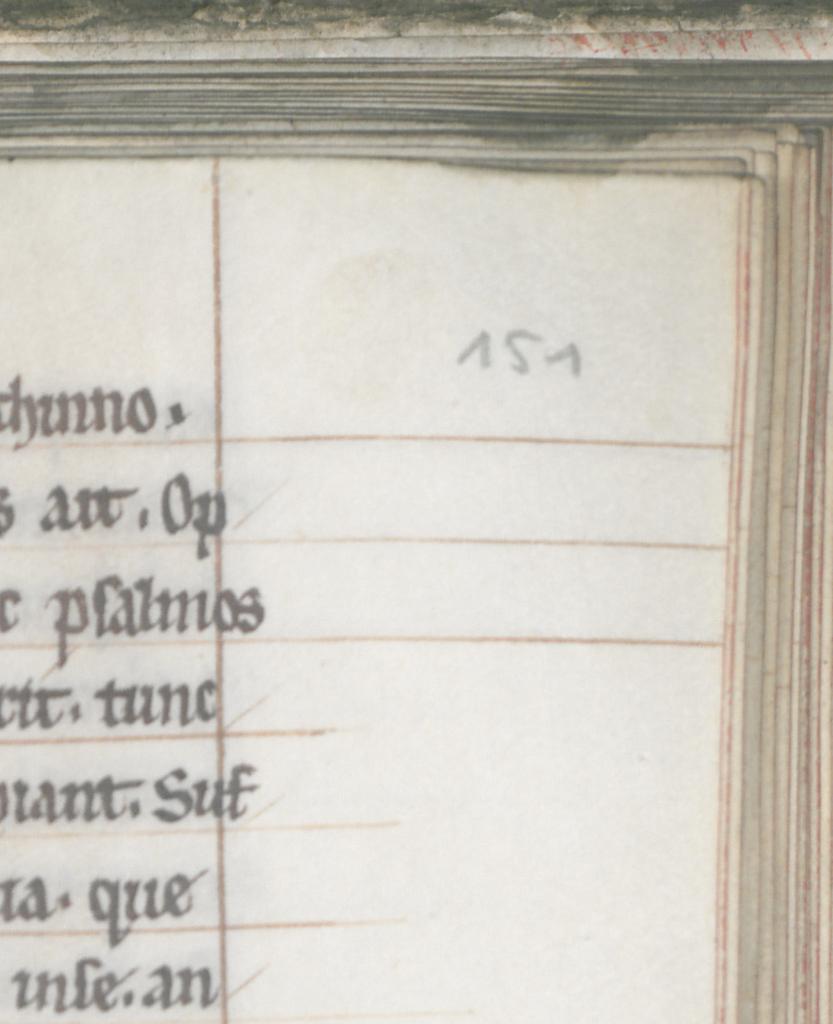 151
thinno.
s ait. Op
c psalmos
rit. tunc
piant. Suf
ua. que
inse. an